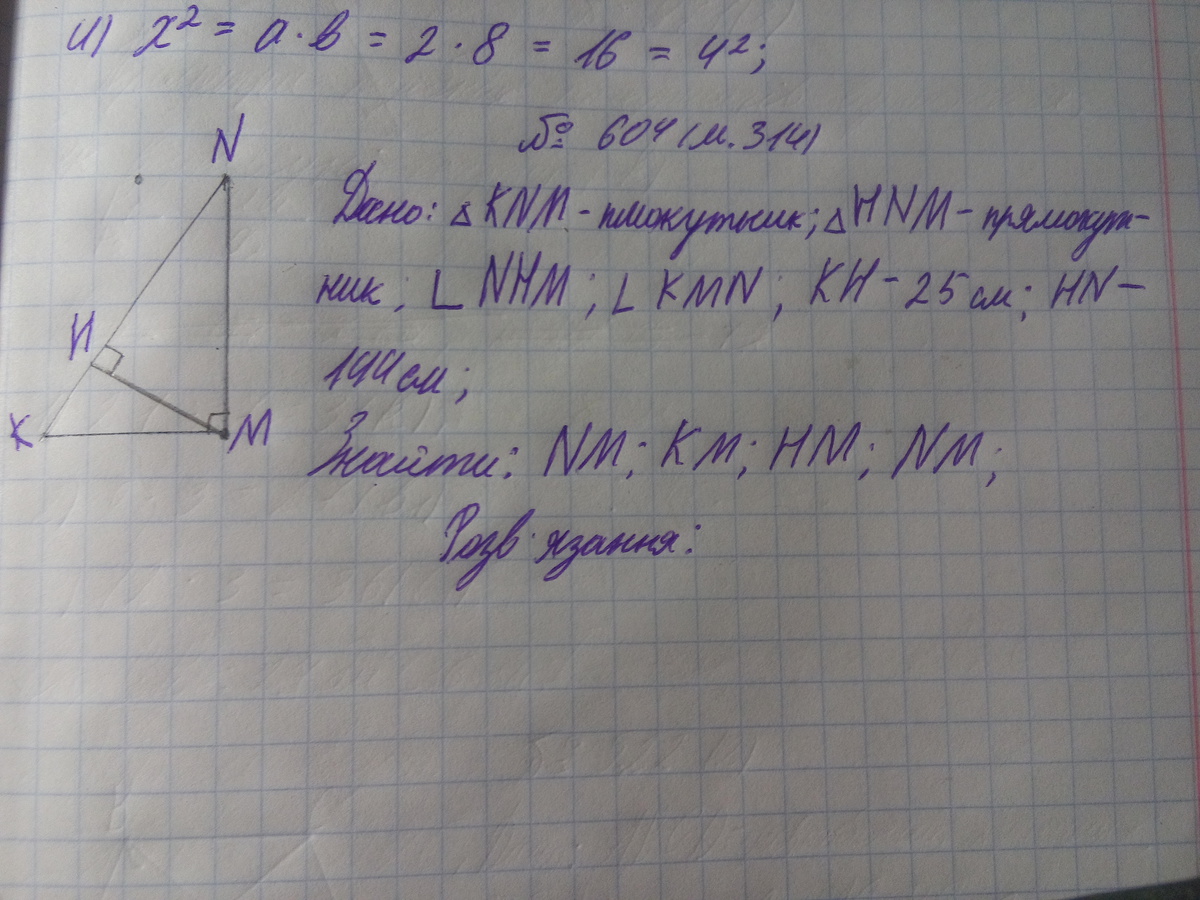 4) x² = a·b = 2·8 = 16 = 4²;
№ 604 (м. 314)
N
Дано: △ KNM - пможутник; △ HNM - прямокут-
ник; ∟ NHM; ∟ KMN; KH - 25 см; HN -
H
144 см;
K
M
Знайти: NM; KM; HM; NM;
Розв'язання: